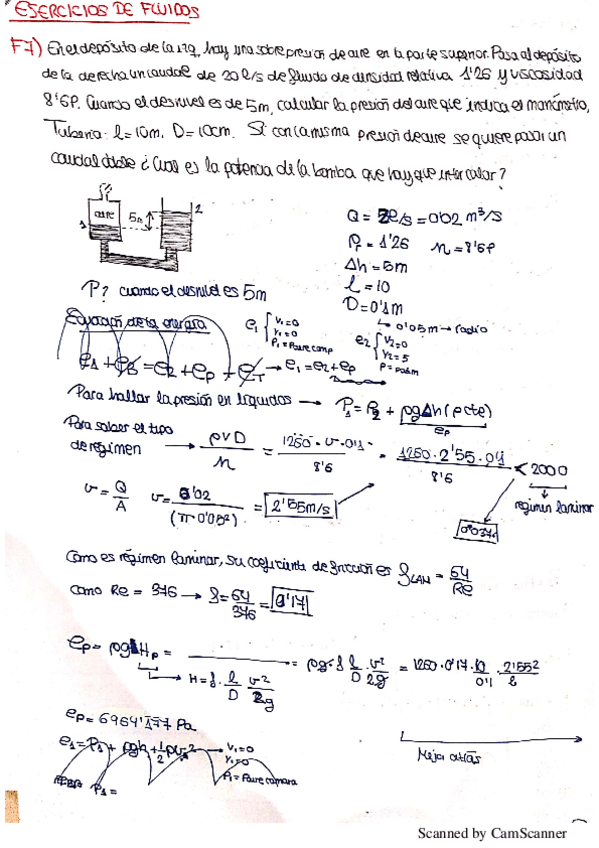 EJERCICIOS DE FLUIDOS
F7) En el depósito de la izq, hay una sobrepresion de aire en la parte superior. Pasa al depósito
de la derecha un caudal de 20 l/s de fluido de densidad relativa 1'26 y viscosidad
8'6P. Cuando el desnivel es de 5m, calcular la presión del aire que indica el manómetro,
Tuberia: l=10m. D=10cm. Si con la misma presion de aire se quiere pasar un
caudal doble ¿Cual es la potencia de la bomba que hay que intercalar?
aire 5m 2
1
Q = 2 l/s = 0'02 m³/s
ρ = 1'26 η = 8'6P
Δh = 5m
l = 10
D = 0'1m
↳ 0'05m → radio
P? cuando el desnivel es 5m
Ecuación de la energia
e₁ { V₁=0 Y₁=0 P₁=Paire comp
e₂ { V₂=0 Y₂=5 P=Patm
e₁ + e_B = e₂ + e_p + e_T → e₁ = e₂ + e_p
Para hallar la presión en liquidos → P₁ = P₂ + ρgΔh (ρ cte)
e_p
Para saber el tipo de régimen → ρVD/η = 1260 · v · 0'1 / 8'6 = 1260 · 2'55 · 0'1 / 8'6 < 2000
régimen laminar
v = Q/A v = 0'02 / (π·0'05²) = 2'55 m/s
Como es régimen laminar, su coeficiente de fricción es f_LAM = 64/Re
como Re = 376 → f = 64/376 = 0'17
e_p = ρgΔH_p = = ρg · f l/D · v²/2g = 1260 · 0'17 · 10/0'1 · 2'55²/2
↳ H = f · l/D v²/2g
e_p = 6964'177 Pa
e₁ = P₁ + ρgh + 1/2 ρv² → V₁=0
Y₁=0
P₁ = Paire camara
P₁ =
Mejor atrás
Scanned by CamScanner